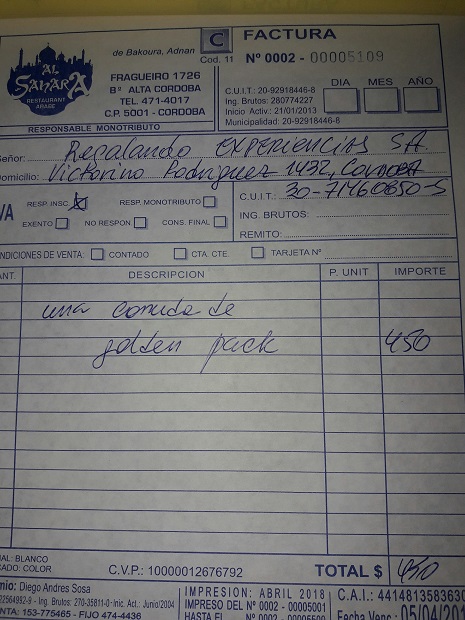 AL SAHARA
RESTAURANT ARABE
de Bakoura, Adnan
FRAGUEIRO 1726
Bº ALTA CORDOBA
TEL. 471-4017
C.P. 5001 - CORDOBA
RESPONSABLE MONOTRIBUTO
C
Cod. 11
FACTURA
Nº 0002 - 00005109
C.U.I.T.: 20-92918446-8
Ing. Brutos: 280774227
Inicio Activ.: 21/01/2013
Municipalidad: 20-92918446-8
DIA MES AÑO
Señor: Regalando Experiencias SA.
Domicilio: Victorino Rodriguez 1432, Cordoba
IVA RESP. INSC. RESP. MONOTRIBUTO
EXENTO NO RESPON CONS. FINAL
C.U.I.T.: 30-71460850-5
ING. BRUTOS:
REMITO:
NDICIONES DE VENTA: CONTADO CTA. CTE. TARJETA Nº
ANT. DESCRIPCION P. UNIT IMPORTE
una comida de
golden pack 450
AL: BLANCO
CADO: COLOR
C.V.P.: 10000012676792
TOTAL $ 450
mio: Diego Andres Sosa
22564992-9 - Ing. Brutos: 270-35811-0 - Inic. Act.: Junio/2004
NTA: 153-775465 - FIJO 474-4436
IMPRESION: ABRIL 2018
IMPRESO DEL Nº 0002 - 00005001
HASTA EL Nº 0002 -
C.A.I.: 4414813583630
Fecha Venc.: 05/04/201